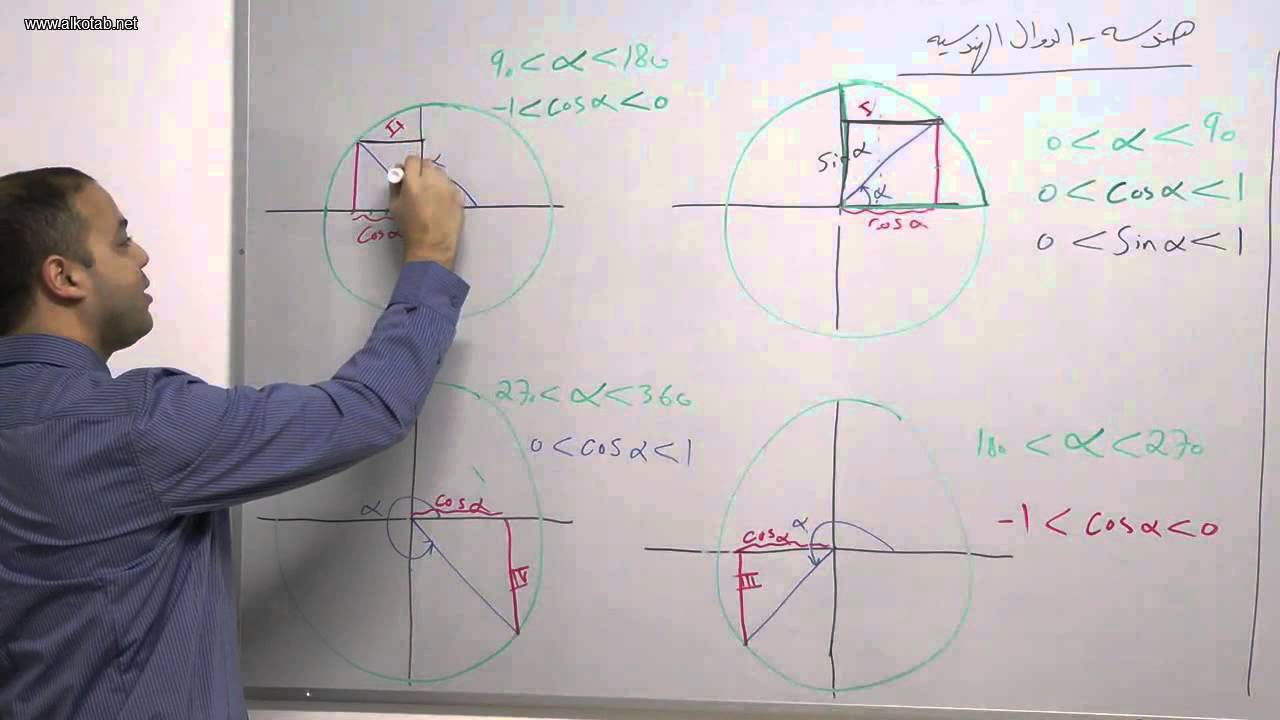 www.alkotab.net
هندسه - الدوال الهندسيه
90 < α < 180
-1 < cos α < 0
II
α
cos α
I
sin α
α
cos α
0 < α < 90
0 < cos α < 1
0 < sin α < 1
270 < α < 360
0 < cos α < 1
α
cos α
IV
180 < α < 270
-1 < cos α < 0
α
cos α
III